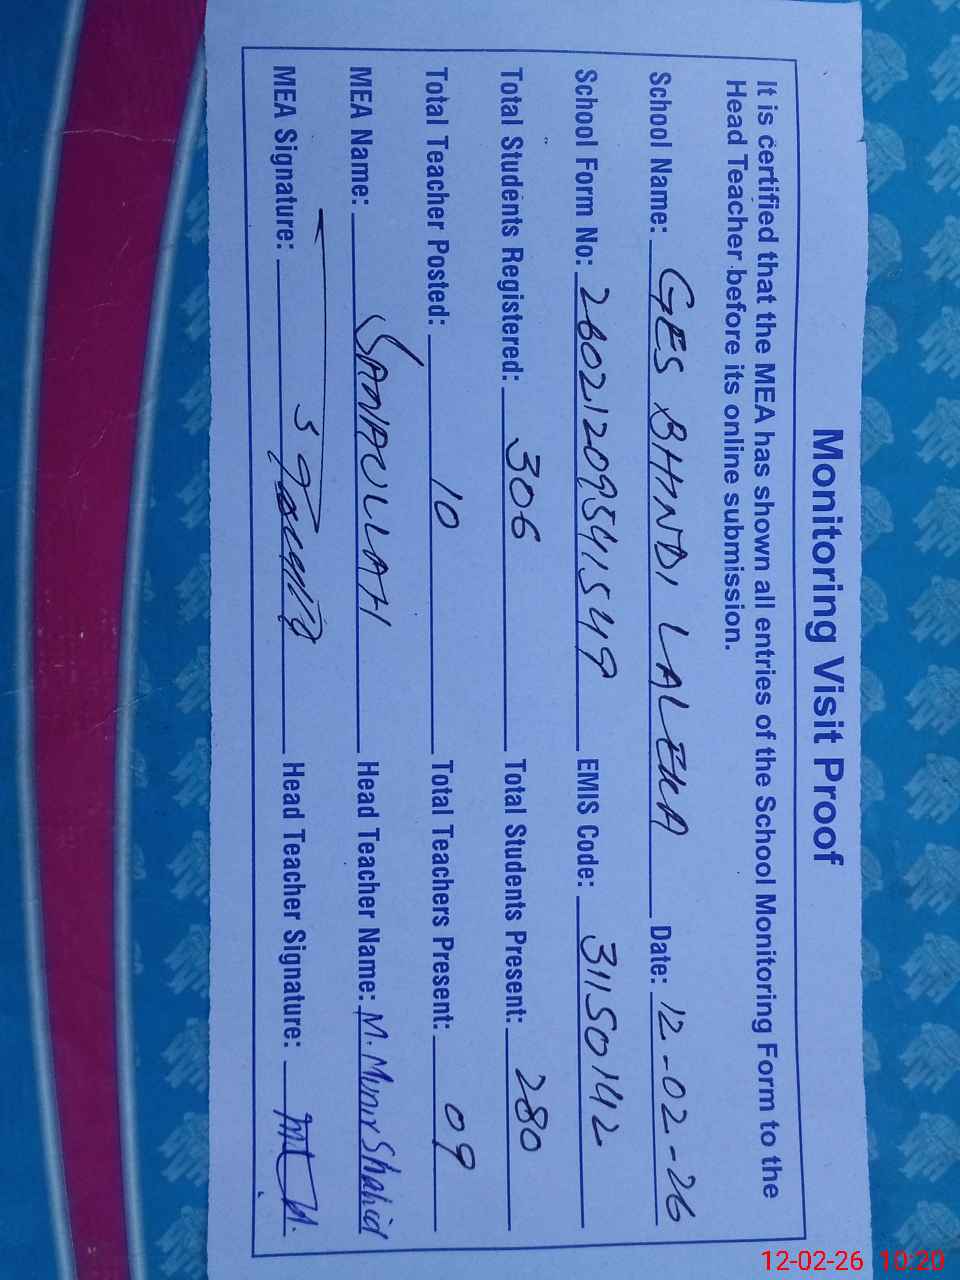 Monitoring Visit Proof
It is certified that the MEA has shown all entries of the School Monitoring Form to the
Head Teacher before its online submission.
School Name: GES BHINDI LALEKA Date: 12-02-26
School Form No: 26021209541549 EMIS Code: 31150142
Total Students Registered: 306 Total Students Present: 280
Total Teacher Posted: 10 Total Teachers Present: 09
MEA Name: SANAULLAH Head Teacher Name: M. Munir Shahid
MEA Signature: Head Teacher Signature:
12-02-26 10:20